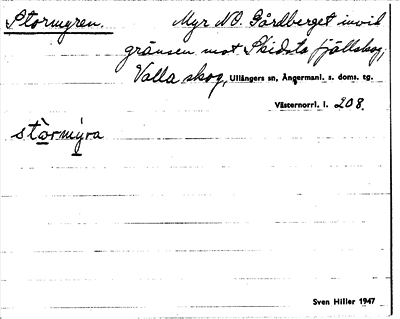 Stormyren. Myr NO. Gårdberget invid
gränsen mot Skidsta fjällskog,
Valla skog, Ullångers sn, Ångermanl. s. doms. tg.
Västernorrl. l. 208.
stòrmýra
Sven Hiller 1947